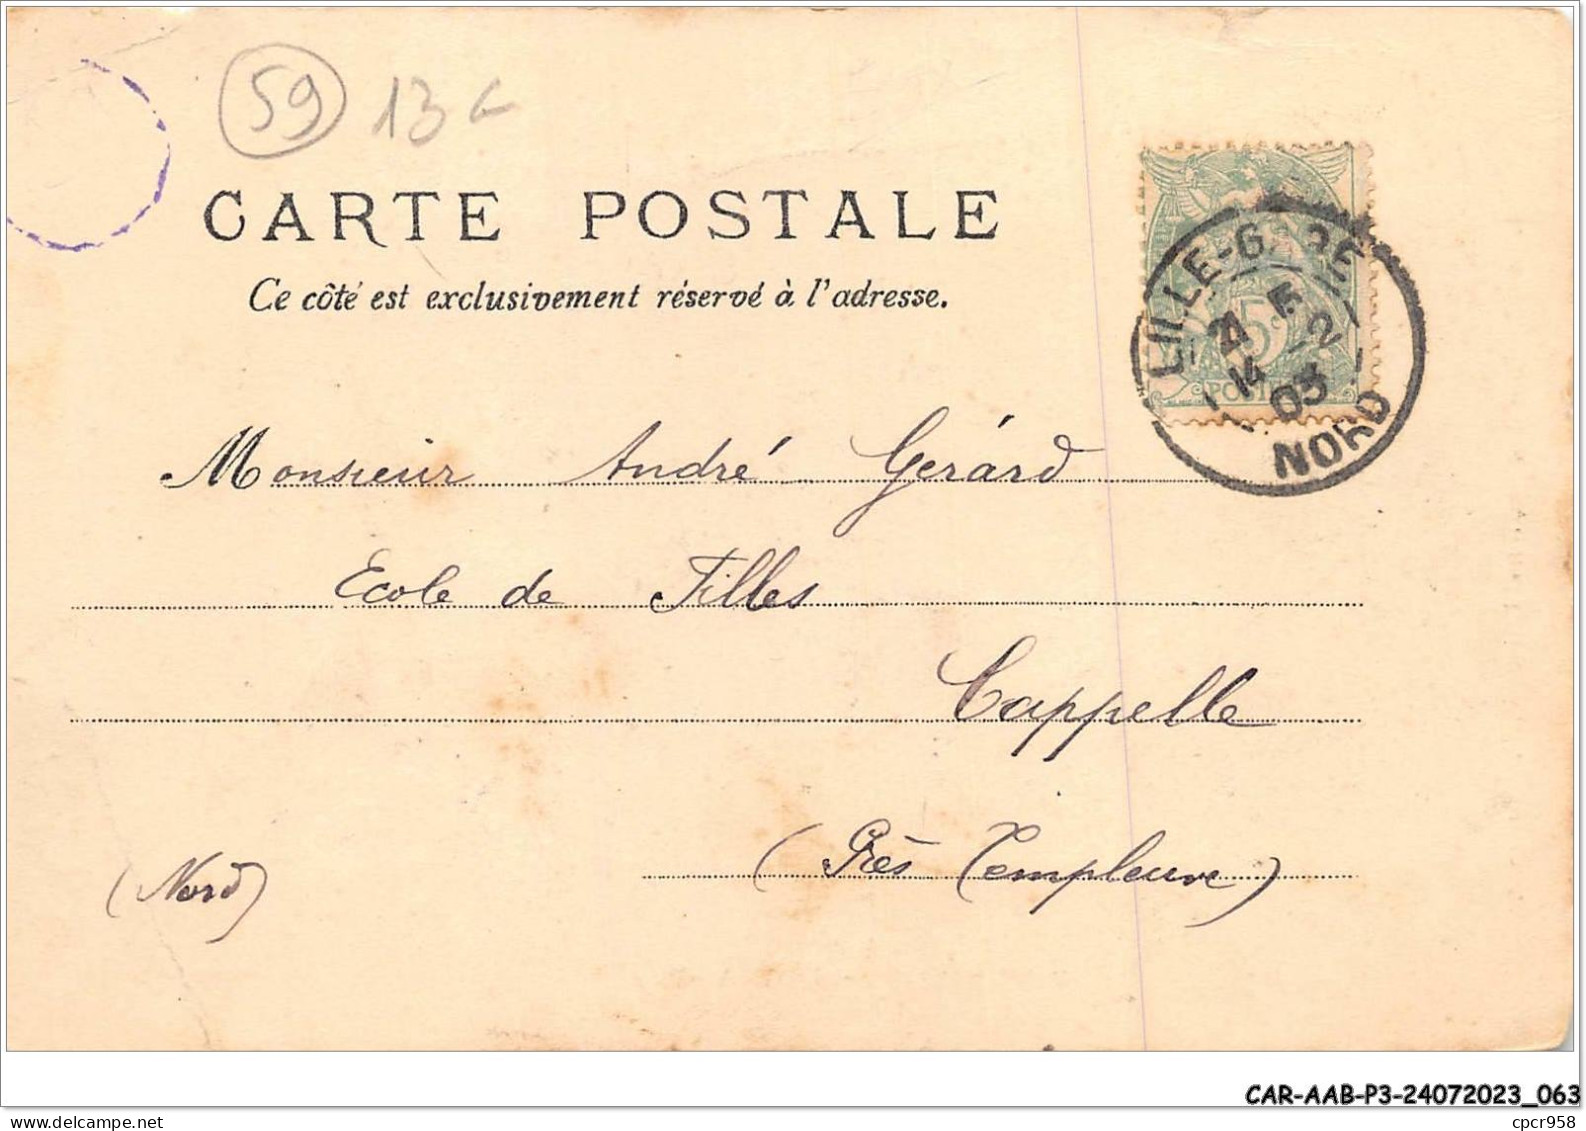 59 13
CARTE POSTALE
Ce côté est exclusivement réservé à l'adresse.
LILLE-GARE
5c
14 2
03
POST
NORD
Monsieur André Gérard
Ecole de Filles
Cappelle
(Près Templeuve)
(Nord)
CAR-AAB-P3-24072023_063
delcampe.net
cpcr958